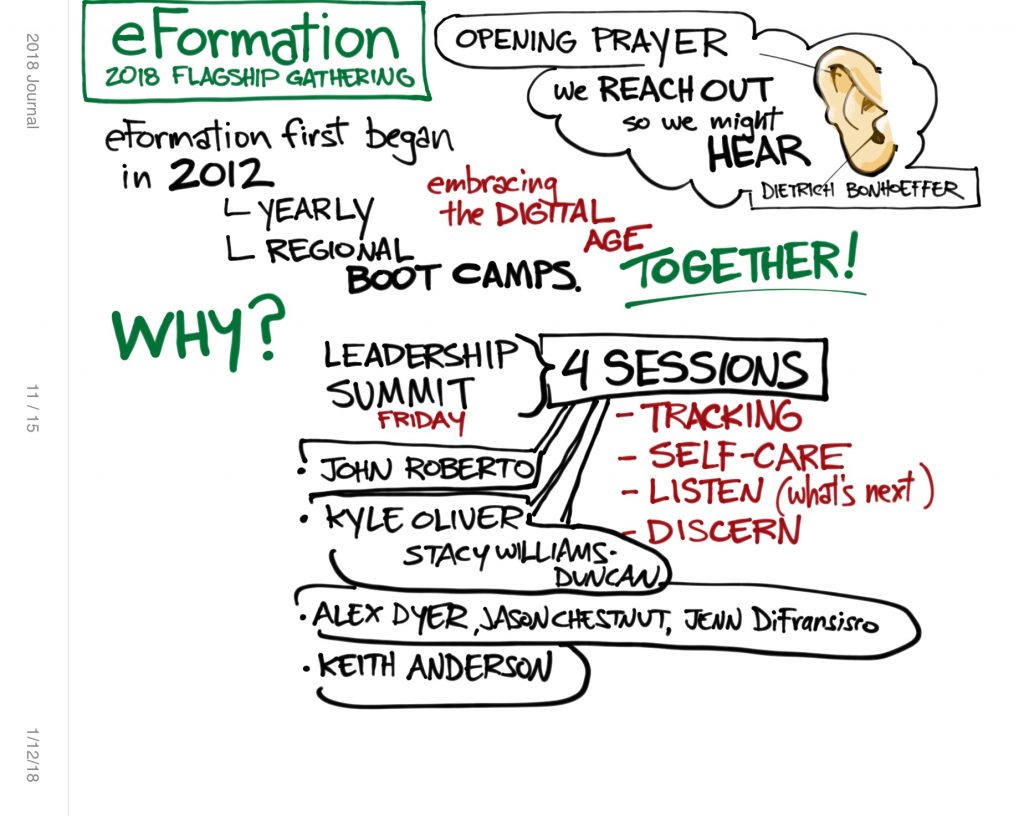 2018 Journal
11 / 15
1/12/18
eFormation
2018 FLAGSHIP GATHERING
OPENING PRAYER
we REACH OUT
so we might
HEAR
DIETRICH BONHOEFFER
eFormation first began
in 2012
YEARLY
REGIONAL
BOOT CAMPS.
embracing
the DIGITAL
AGE
TOGETHER!
WHY?
LEADERSHIP
SUMMIT
FRIDAY
4 SESSIONS
- TRACKING
- SELF-CARE
- LISTEN (what's next)
- DISCERN
• JOHN ROBERTO
• KYLE OLIVER
STACY WILLIAMS-
DUNCAN
• ALEX DYER, JASON CHESTNUT, JENN DiFransisco
• KEITH ANDERSON